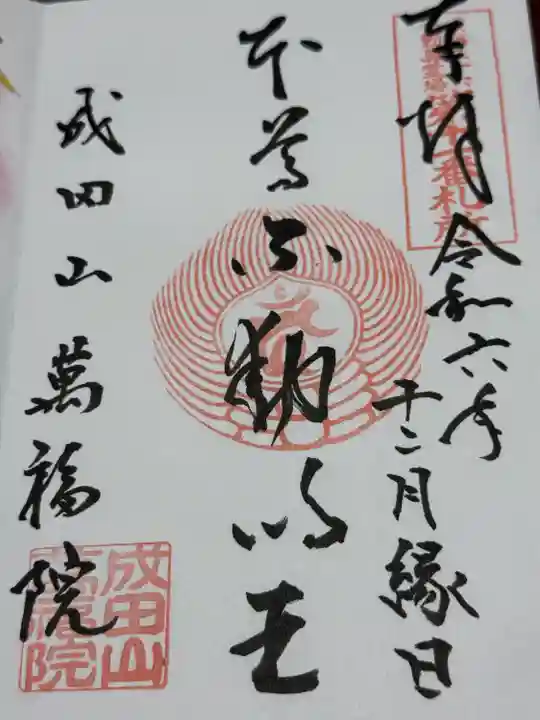 奉拝
令和六年
十二月縁日
第十二番札所
本尊不動明王
成田山萬福院
成田山
萬福院